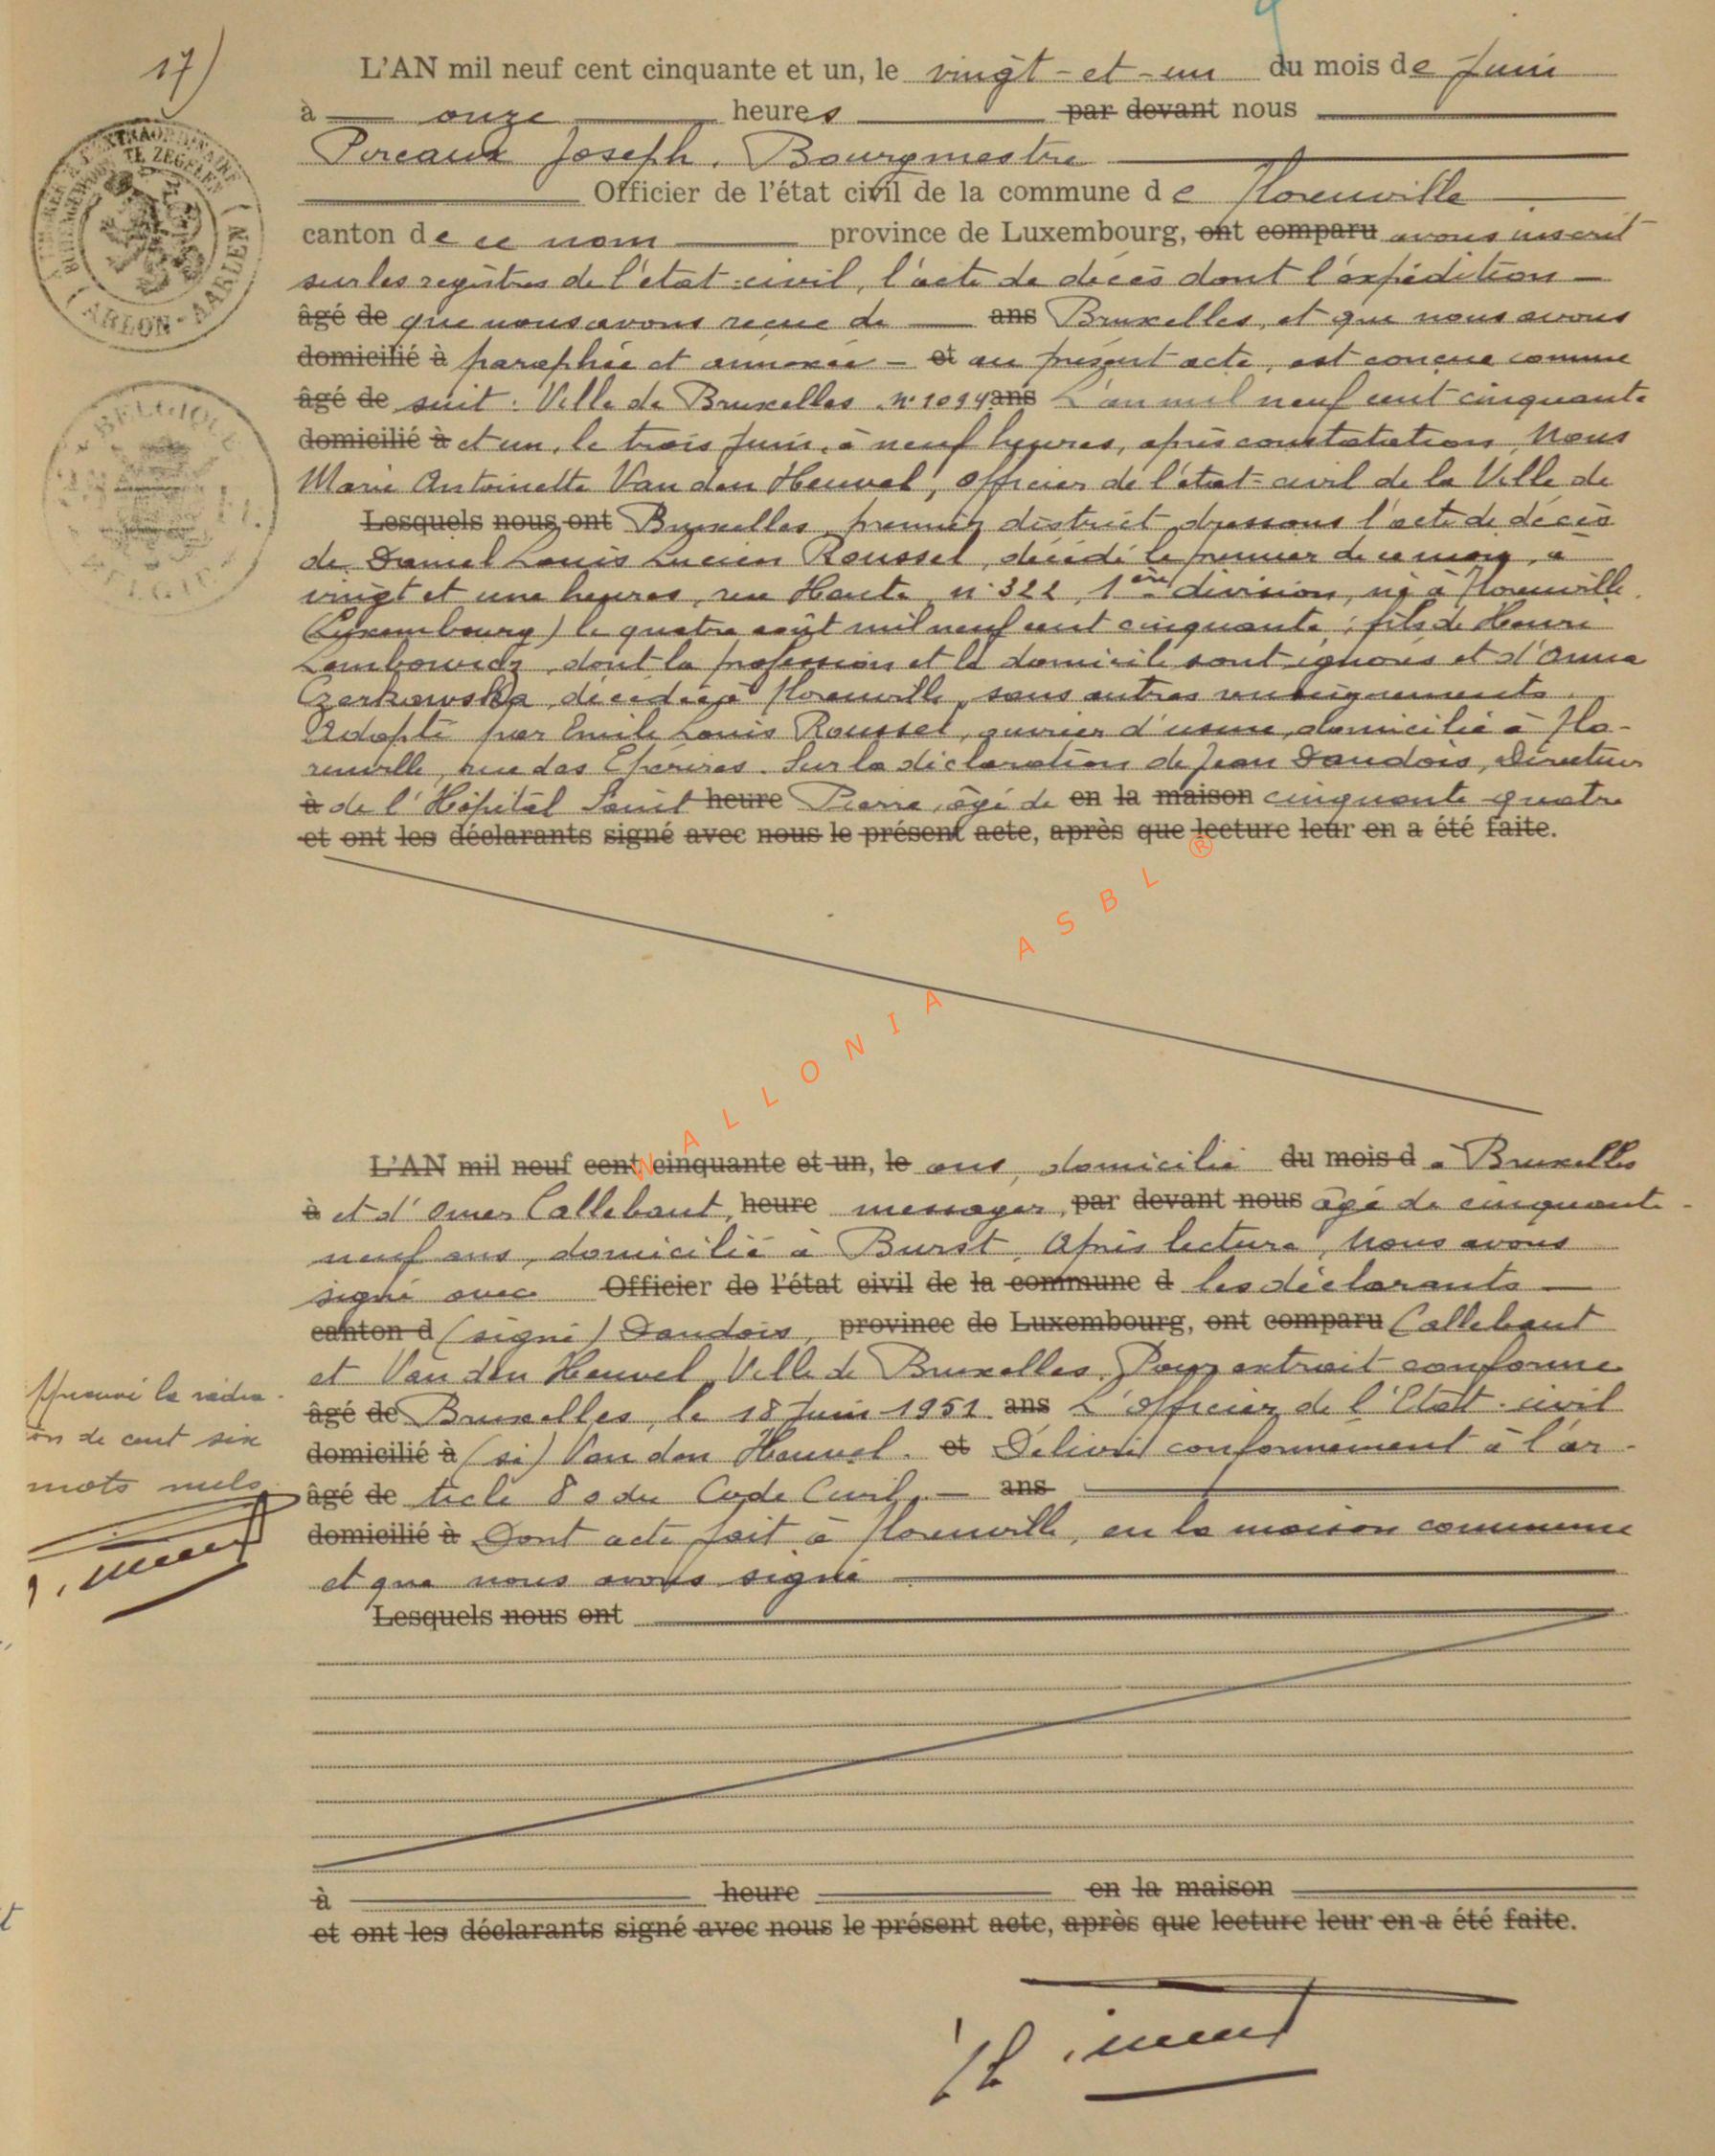 17)
L'AN mil neuf cent cinquante et un, le vingt-et-un du mois de Juin
à onze heures par devant nous
Pireaux Joseph, Bourgmestre
Officier de l'état civil de la commune de Florenville
canton de ce nom province de Luxembourg, ont comparu avons inscrit
sur les registres de l'état-civil, l'acte de décès dont l'expédition
âgé de que nous avons reçue de ans Bruxelles, et que nous avons
domicilié à paraphée et annexée et au présent acte, est conçue comme
âgé de suit : Ville de Bruxelles. n° 1094 ans L'an mil neuf cent cinquante
domicilié à et un, le trois Juin, à neuf heures, après constatation, Nous
Marie Antoinette Van den Heuvel, officier de l'état-civil de la Ville de
Lesquels nous ont Bruxelles, premier district, dressons l'acte de décès
de Daniel Louis Lucien Roussel, décédé le premier de ce mois, à
vingt et une heures, rue Haute, n° 322, 1ère division, né à Florenville
(Luxembourg) le quatre août mil neuf cent cinquante ; fils de Henri
Lambowicz, dont la profession et le domicile sont ignorés et d'Anna
Czerkowska, décédée à Florenville, sans autres renseignements.
Adopté par Emile Louis Roussel, ouvrier d'usine, domicilié à Flo-
renville, rue des Epérires. Sur la déclaration de Jean Dandois, Directeur
à de l'Hôpital Saint heure Pierre, âgé de en la maison cinquante quatre
et ont les déclarants signé avec nous le présent acte, après que lecture leur en a été faite.
WALLONIA ASBL ®
L'AN mil neuf cent cinquante et un, le ans, domicilié du mois d à Bruxelles
à et d'Omer Callebaut, heure messager, par devant nous âgé de cinquante-
neuf ans, domicilié à Burst. Après lecture, Nous avons
signé avec Officier de l'état civil de la commune d les déclarants
canton d (signé) Dandois, province de Luxembourg, ont comparu Callebaut
et Van den Heuvel. Ville de Bruxelles. Pour extrait conforme
âgé de Bruxelles, le 18 Juin 1951. ans L'officier de l'Etat-civil
domicilié à (si) Van den Heuvel. et Délivré conformément à l'ar-
âgé de ticle 80 du Code Civil. ans
domicilié à Dont acte fait à Florenville, en la maison commune
et que nous avons signé
Lesquels nous ont
Approuvé la radia-
tion de cent six
mots nuls
à heure en la maison
et ont les déclarants signé avec nous le présent acte, après que lecture leur en a été faite.
TE ZEGELEN
(ARLON-AARLEN)
BELGIQUE
BELGIE